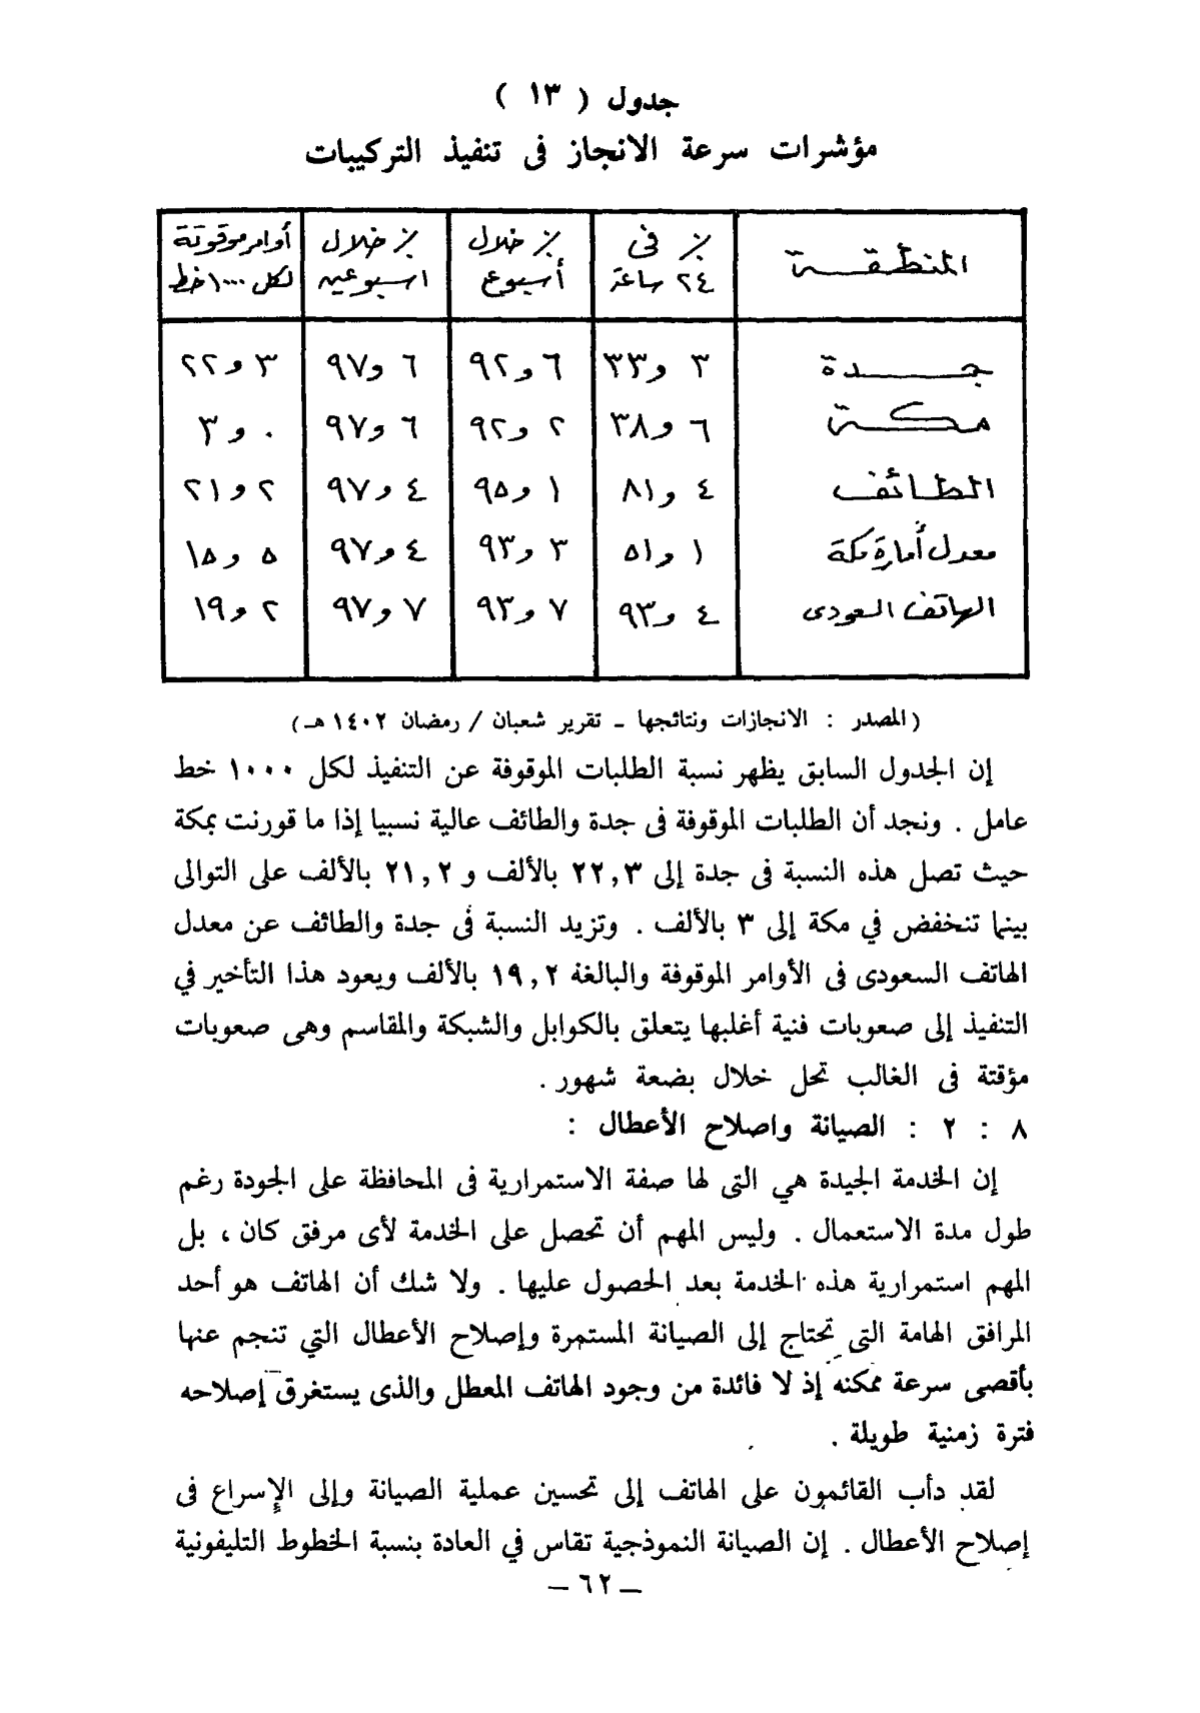 جدول ( ١٣ )
مؤشرات سرعة الانجاز فى تنفيذ التركيبات
المنطقـــة ٪ فى ٢٤ ساعة ٪ خلال أسبوع ٪ خلال اسبوعين أوامر موقوتة لكل ١٠٠٠ خط
جـــدة ٣ و٣٣ ٦ و٩٢ ٦ و٩٧ ٣ و٢٢
مكـــة ٦ و٣٨ ٢ و٩٢ ٦ و٩٧ ٠ و٣
الطـائف ٤ و٨١ ١ و٩٥ ٤ و٩٧ ٢ و٢١
معدل أمارة مكة ١ و٥١ ٣ و٩٣ ٤ و٩٧ ٥ و١٥
الهاتف السعودى ٤ و٩٣ ٧ و٩٣ ٧ و٩٧ ٢ و١٩
(المصدر : الانجازات ونتائجها ـ تقرير شعبان / رمضان ١٤٠٢هـ)
إن الجدول السابق يظهر نسبة الطلبات الموقوفة عن التنفيذ لكل ١٠٠٠ خط
عامل . ونجد أن الطلبات الموقوفة فى جدة والطائف عالية نسبيا إذا ما قورنت بمكة
حيث تصل هذه النسبة فى جدة إلى ٢٢,٣ بالألف و ٢١,٢ بالألف على التوالى
بينما تنخفض في مكة إلى ٣ بالألف . وتزيد النسبة فى جدة والطائف عن معدل
الهاتف السعودى فى الأوامر الموقوفة والبالغة ١٩,٢ بالألف ويعود هذا التأخير في
التنفيذ إلى صعوبات فنية أغلبها يتعلق بالكوابل والشبكة والمقاسم وهى صعوبات
مؤقتة فى الغالب تحل خلال بضعة شهور .
٨ : ٢ : الصيانة واصلاح الأعطال :
إن الخدمة الجيدة هي التى لها صفة الاستمرارية فى المحافظة على الجودة رغم
طول مدة الاستعمال . وليس المهم أن تحصل على الخدمة لأى مرفق كان ، بل
المهم استمرارية هذه الخدمة بعد الحصول عليها . ولا شك أن الهاتف هو أحد
المرافق الهامة التى تحتاج إلى الصيانة المستمرة وإصلاح الأعطال التي تنجم عنها
بأقصى سرعة ممكنه إذ لا فائدة من وجود الهاتف المعطل والذى يستغرق إصلاحه
فترة زمنية طويلة .
لقد دأب القائمون على الهاتف إلى تحسين عملية الصيانة وإلى الإسراع فى
إصلاح الأعطال . إن الصيانة النموذجية تقاس في العادة بنسبة الخطوط التليفونية
ـ ٦٢ ـ